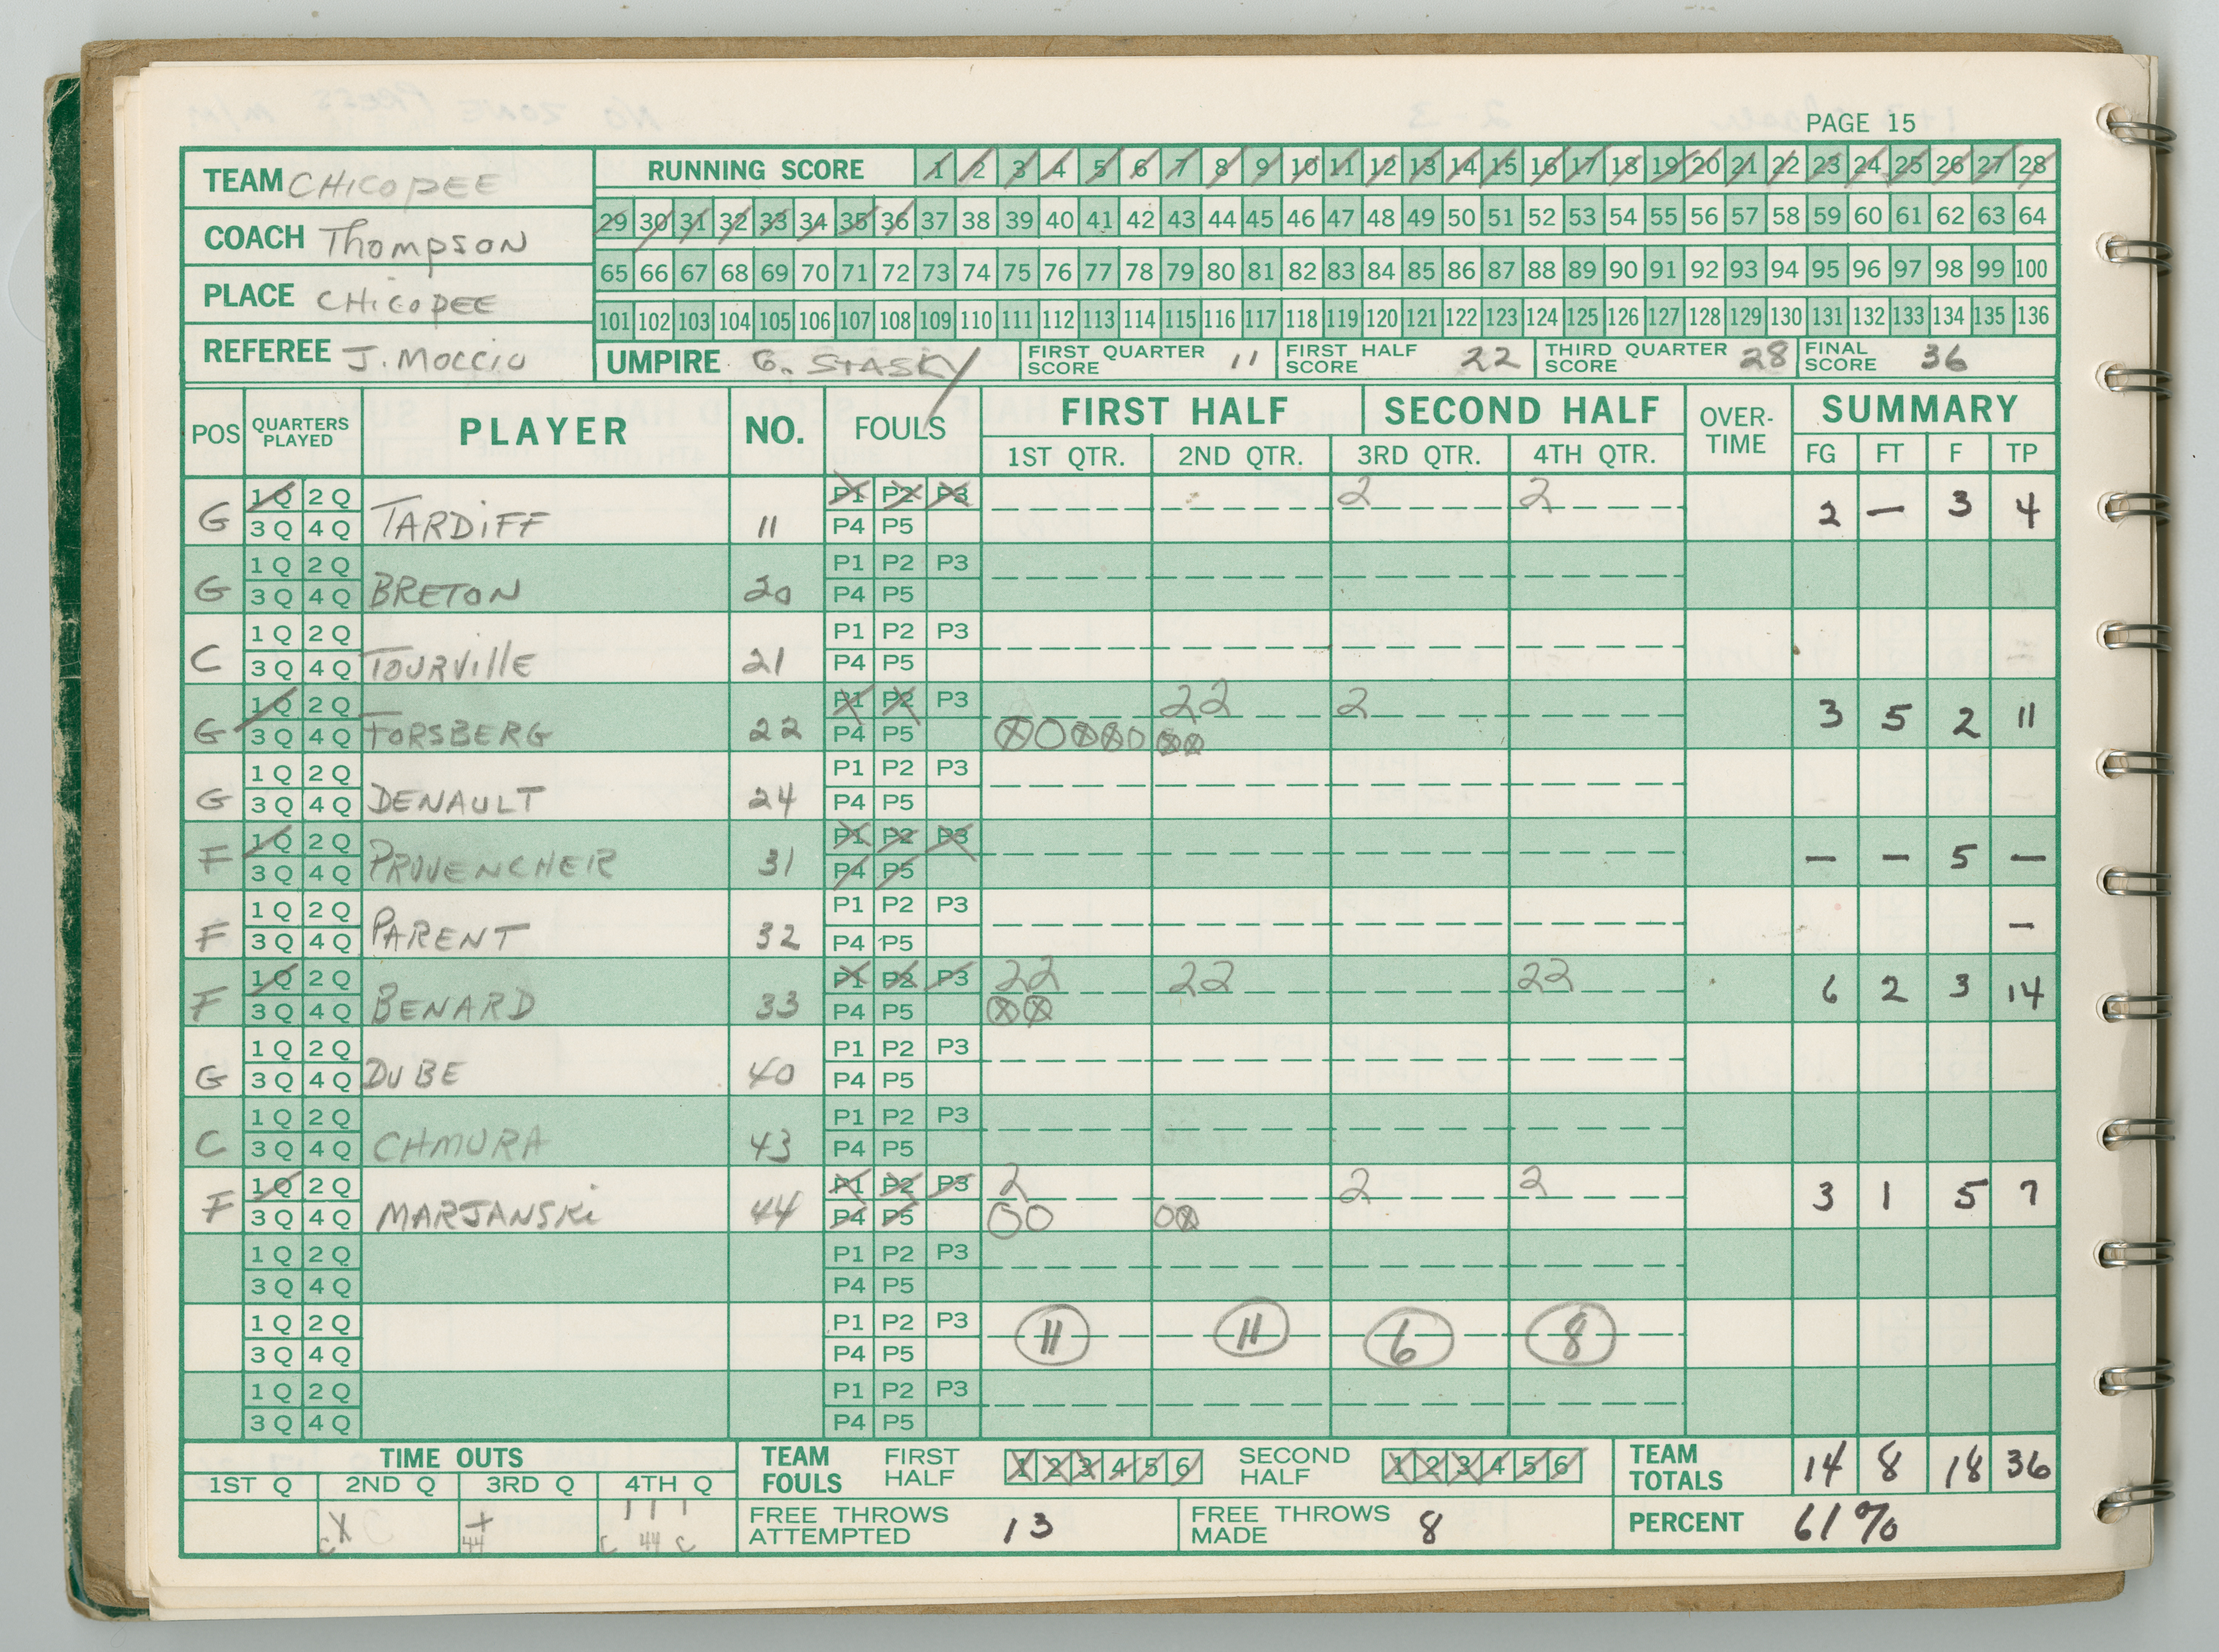 PAGE 15
TEAM CHICOPEE
RUNNING SCORE 1 2 3 4 5 6 7 8 9 10 11 12 13 14 15 16 17 18 19 20 21 22 23 24 25 26 27 28
COACH Thompson
29 30 31 32 33 34 35 36 37 38 39 40 41 42 43 44 45 46 47 48 49 50 51 52 53 54 55 56 57 58 59 60 61 62 63 64
PLACE CHICOPEE
65 66 67 68 69 70 71 72 73 74 75 76 77 78 79 80 81 82 83 84 85 86 87 88 89 90 91 92 93 94 95 96 97 98 99 100
101 102 103 104 105 106 107 108 109 110 111 112 113 114 115 116 117 118 119 120 121 122 123 124 125 126 127 128 129 130 131 132 133 134 135 136
REFEREE J. MOCCIO
UMPIRE G. STASKY
FIRST QUARTER SCORE 11
FIRST HALF SCORE 22
THIRD QUARTER SCORE 28
FINAL SCORE 36
POS QUARTERS PLAYED PLAYER NO. FOULS FIRST HALF SECOND HALF OVER-TIME SUMMARY
1ST QTR. 2ND QTR. 3RD QTR. 4TH QTR. FG FT F TP
1Q 2Q P1 P2 P3 2 2
G 3Q 4Q TARDIFF 11 P4 P5 2 — 3 4
1Q 2Q P1 P2 P3
G 3Q 4Q BRETON 20 P4 P5
1Q 2Q P1 P2 P3
C 3Q 4Q TOURVILLE 21 P4 P5
1Q 2Q P1 P2 P3 22 2
G 3Q 4Q FORSBERG 22 P4 P5 3 5 2 11
1Q 2Q P1 P2 P3
G 3Q 4Q DENAULT 24 P4 P5
1Q 2Q P1 P2 P3
F 3Q 4Q PROVENCHER 31 P4 P5 — — 5 —
1Q 2Q P1 P2 P3
F 3Q 4Q PARENT 32 P4 P5 —
1Q 2Q P1 P2 P3 22 22 22
F 3Q 4Q BENARD 33 P4 P5 6 2 3 14
1Q 2Q P1 P2 P3
G 3Q 4Q DUBE 40 P4 P5
1Q 2Q P1 P2 P3
C 3Q 4Q CHMURA 43 P4 P5
1Q 2Q P1 P2 P3 2 2 2
F 3Q 4Q MARJANSKi 44 P4 P5 3 1 5 7
1Q 2Q P1 P2 P3
3Q 4Q P4 P5
1Q 2Q P1 P2 P3
3Q 4Q P4 P5 11 11 6 8
1Q 2Q P1 P2 P3
3Q 4Q P4 P5
TIME OUTS
1ST Q 2ND Q 3RD Q 4TH Q
C X 44 C 44 C
TEAM FOULS FIRST HALF 1 2 3 4 5 6 SECOND HALF 1 2 3 4 5 6
TEAM TOTALS 14 8 18 36
FREE THROWS ATTEMPTED 13
FREE THROWS MADE 8
PERCENT 61%